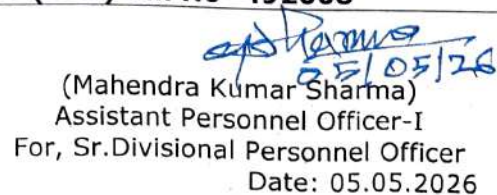 05/05/26
(Mahendra Kumar Sharma)
Assistant Personnel Officer-I
For, Sr.Divisional Personnel Officer
Date: 05.05.2026